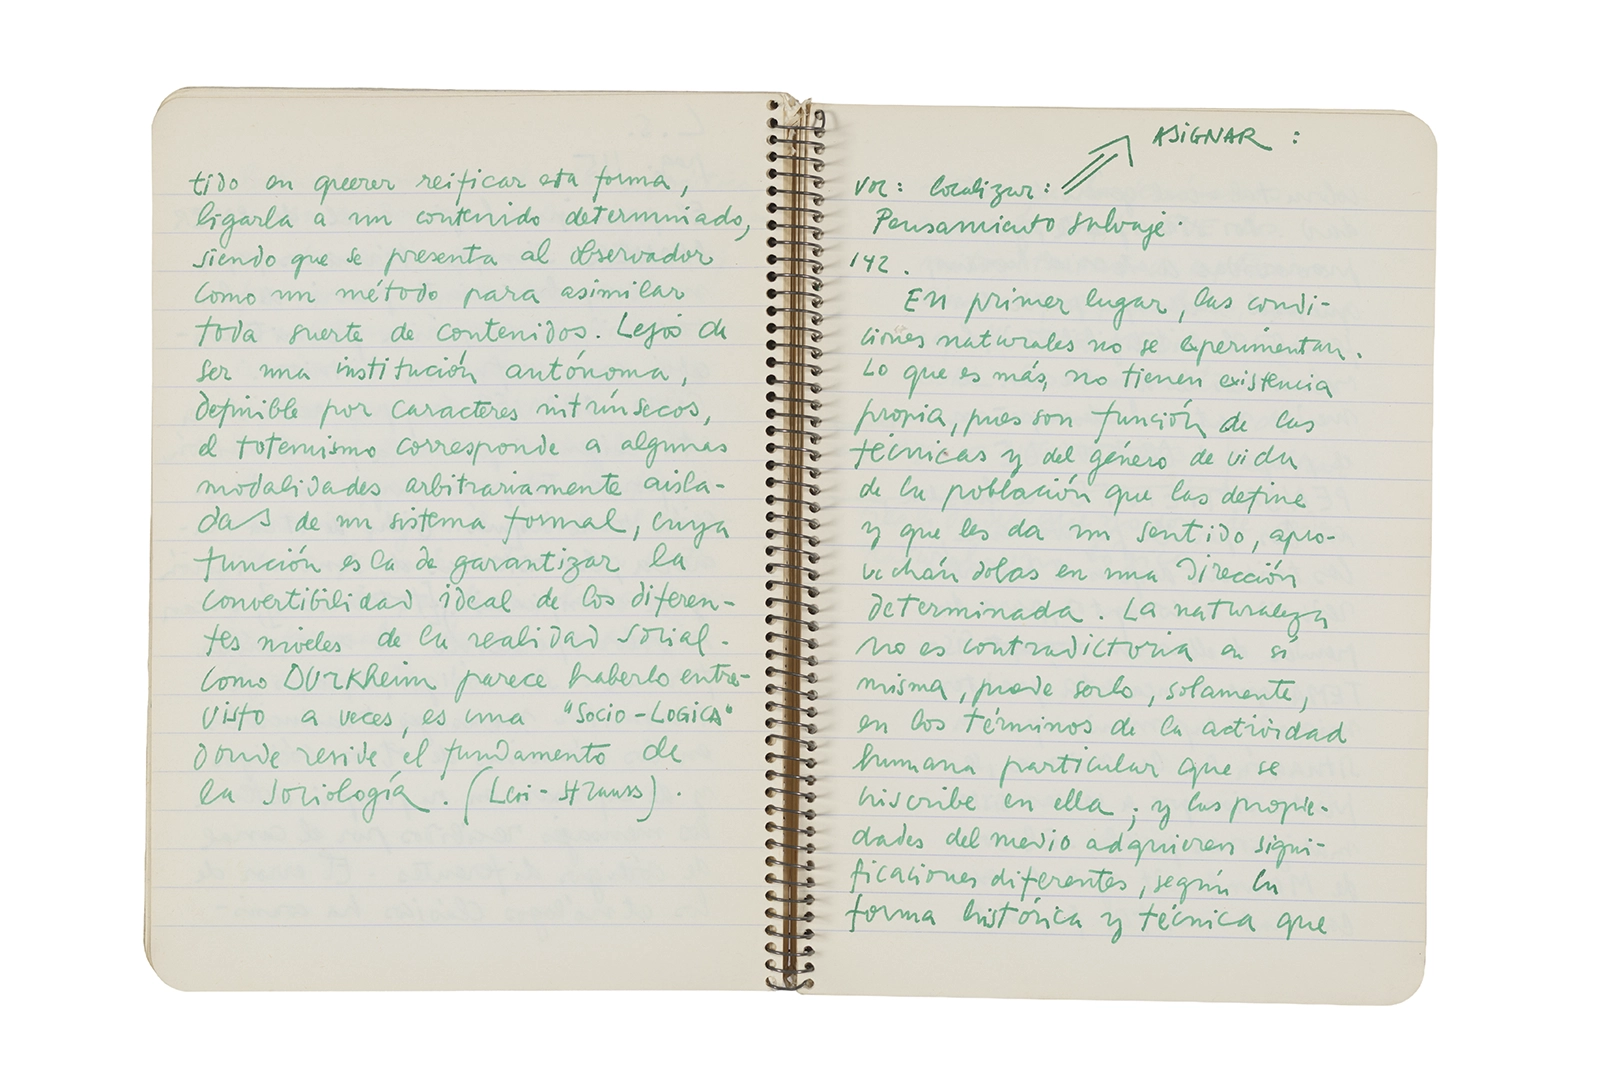 tido en querer reificar esta forma,
ligarla a un contenido determinado,
siendo que se presenta al observador
como un método para asimilar
toda suerte de contenidos. Lejos de
ser una institución autónoma,
definible por caracteres intrínsecos,
el totemismo corresponde a algunas
modalidades arbitrariamente aisla-
das de un sistema formal, cuya
función es la de garantizar la
convertibilidad ideal de los diferen-
tes niveles de la realidad social.
Como Durkheim parece haberlo entre-
visto a veces, es una "SOCIO-LOGICA"
donde reside el fundamento de
la sociología. (Levi-Strauss).
ASIGNAR :
Voz: localizar:
Pensamiento Salvaje.
142.
En primer lugar, las condi-
ciones naturales no se experimentan.
Lo que es más, no tienen existencia
propia, pues son función de las
técnicas y del género de vida
de la población que las define
y que les da un sentido, apro-
vechándolas en una dirección
determinada. La naturaleza
no es contradictoria en sí
misma, puede serlo, solamente,
en los términos de la actividad
humana particular que se
inscribe en ella; y las propie-
dades del medio adquieren signi-
ficaciones diferentes, según la
forma histórica y técnica que